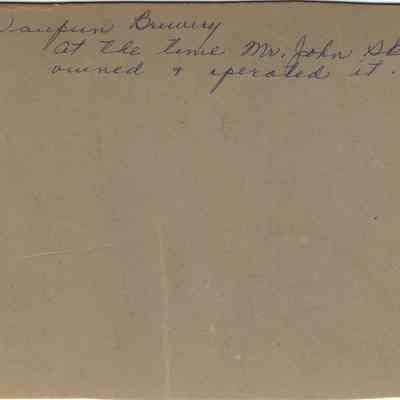 Waupun Brewery
at the time Mr. John Sk
owned & operated it.